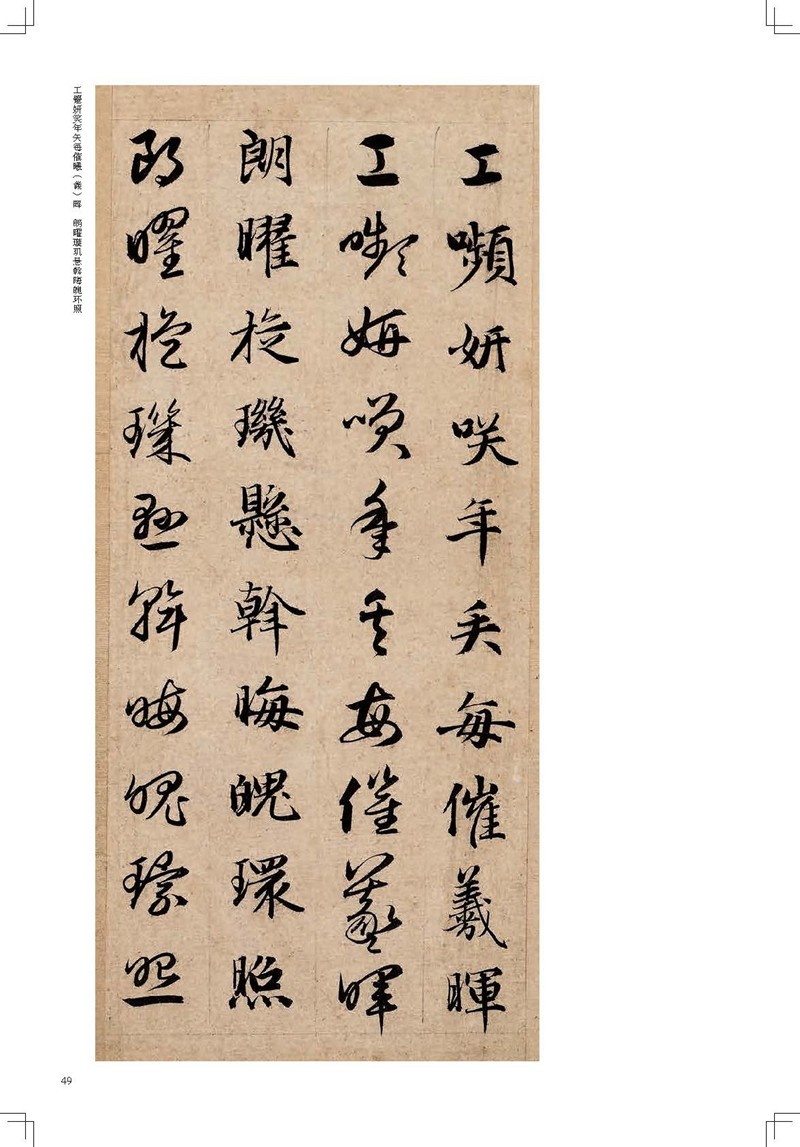 工嚬妍咲年矢每催羲暉
工嚬妍咲年矢每催羲暉
朗曜旋璣懸斡晦魄環照
朗曜旋璣懸斡晦魄環照
工颦妍笑年矢每催曦（羲）晖　朗曜璇玑悬斡晦魄环照
49